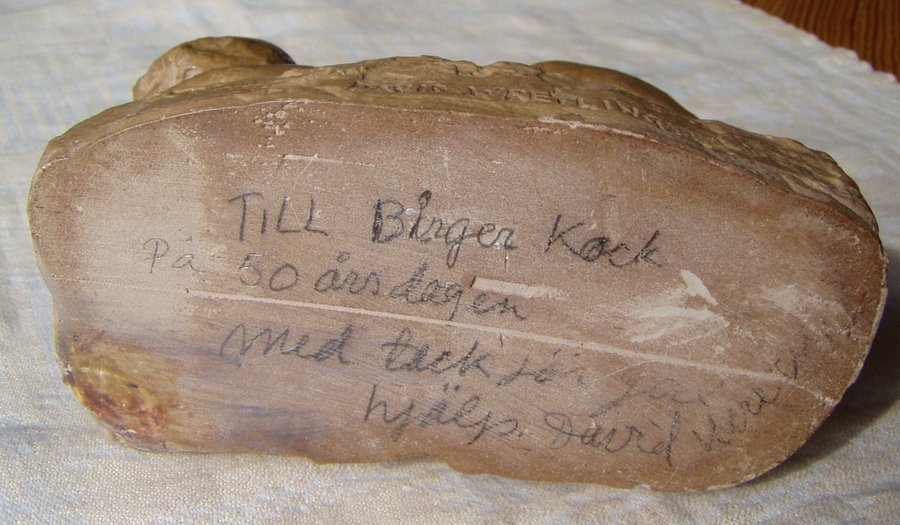 TILL Birger Kock
På 50 årsdagen
Med tack för god
hjälp. David